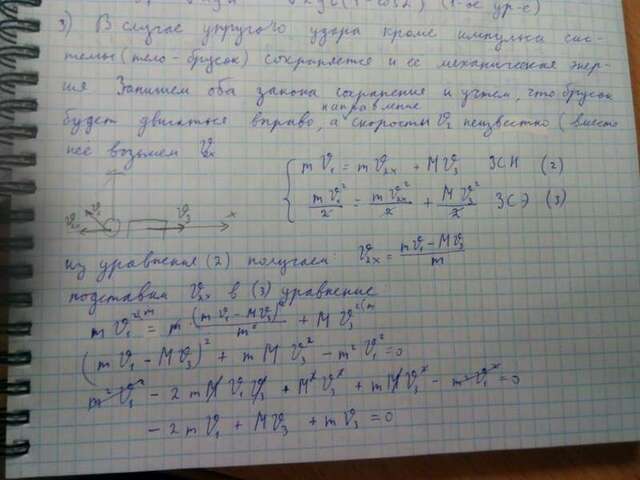 √2gl(1-cosα) (1-ое ур-е)
3) В случае упругого удара кроме импульса сис-
темы (тело - брусок) сохраняется и ее механическая энер-
гия Запишем оба закона сохранения и учтем, что брусок
направление
будет двигаться вправо, а скорость ϑ₂ неизвестно (вместо
нее возьмем ϑ₂ₓ
mϑ₁ = mϑ₂ₓ + Mϑ₃ ЗСИ (2)
mϑ₁²/2 = mϑ₂ₓ²/2 + Mϑ₃²/2 ЗСЭ (3)
ϑ₂ₓ ϑ₃ x
из уравнения (2) получаем: ϑ₂ₓ = (mϑ₁ - Mϑ₃)/m
подставим ϑ₂ₓ в (3) уравнение
mϑ₁² |·m = m · (mϑ₁ - Mϑ₃)²/m² + Mϑ₃² |·m
(mϑ₁ - Mϑ₃)² + mMϑ₃² - m²ϑ₁² = 0
m²ϑ₁² - 2mMϑ₁ϑ₃ + M²ϑ₃² + mMϑ₃² - m²ϑ₁² = 0
- 2mϑ₁ + Mϑ₃ + mϑ₃ = 0